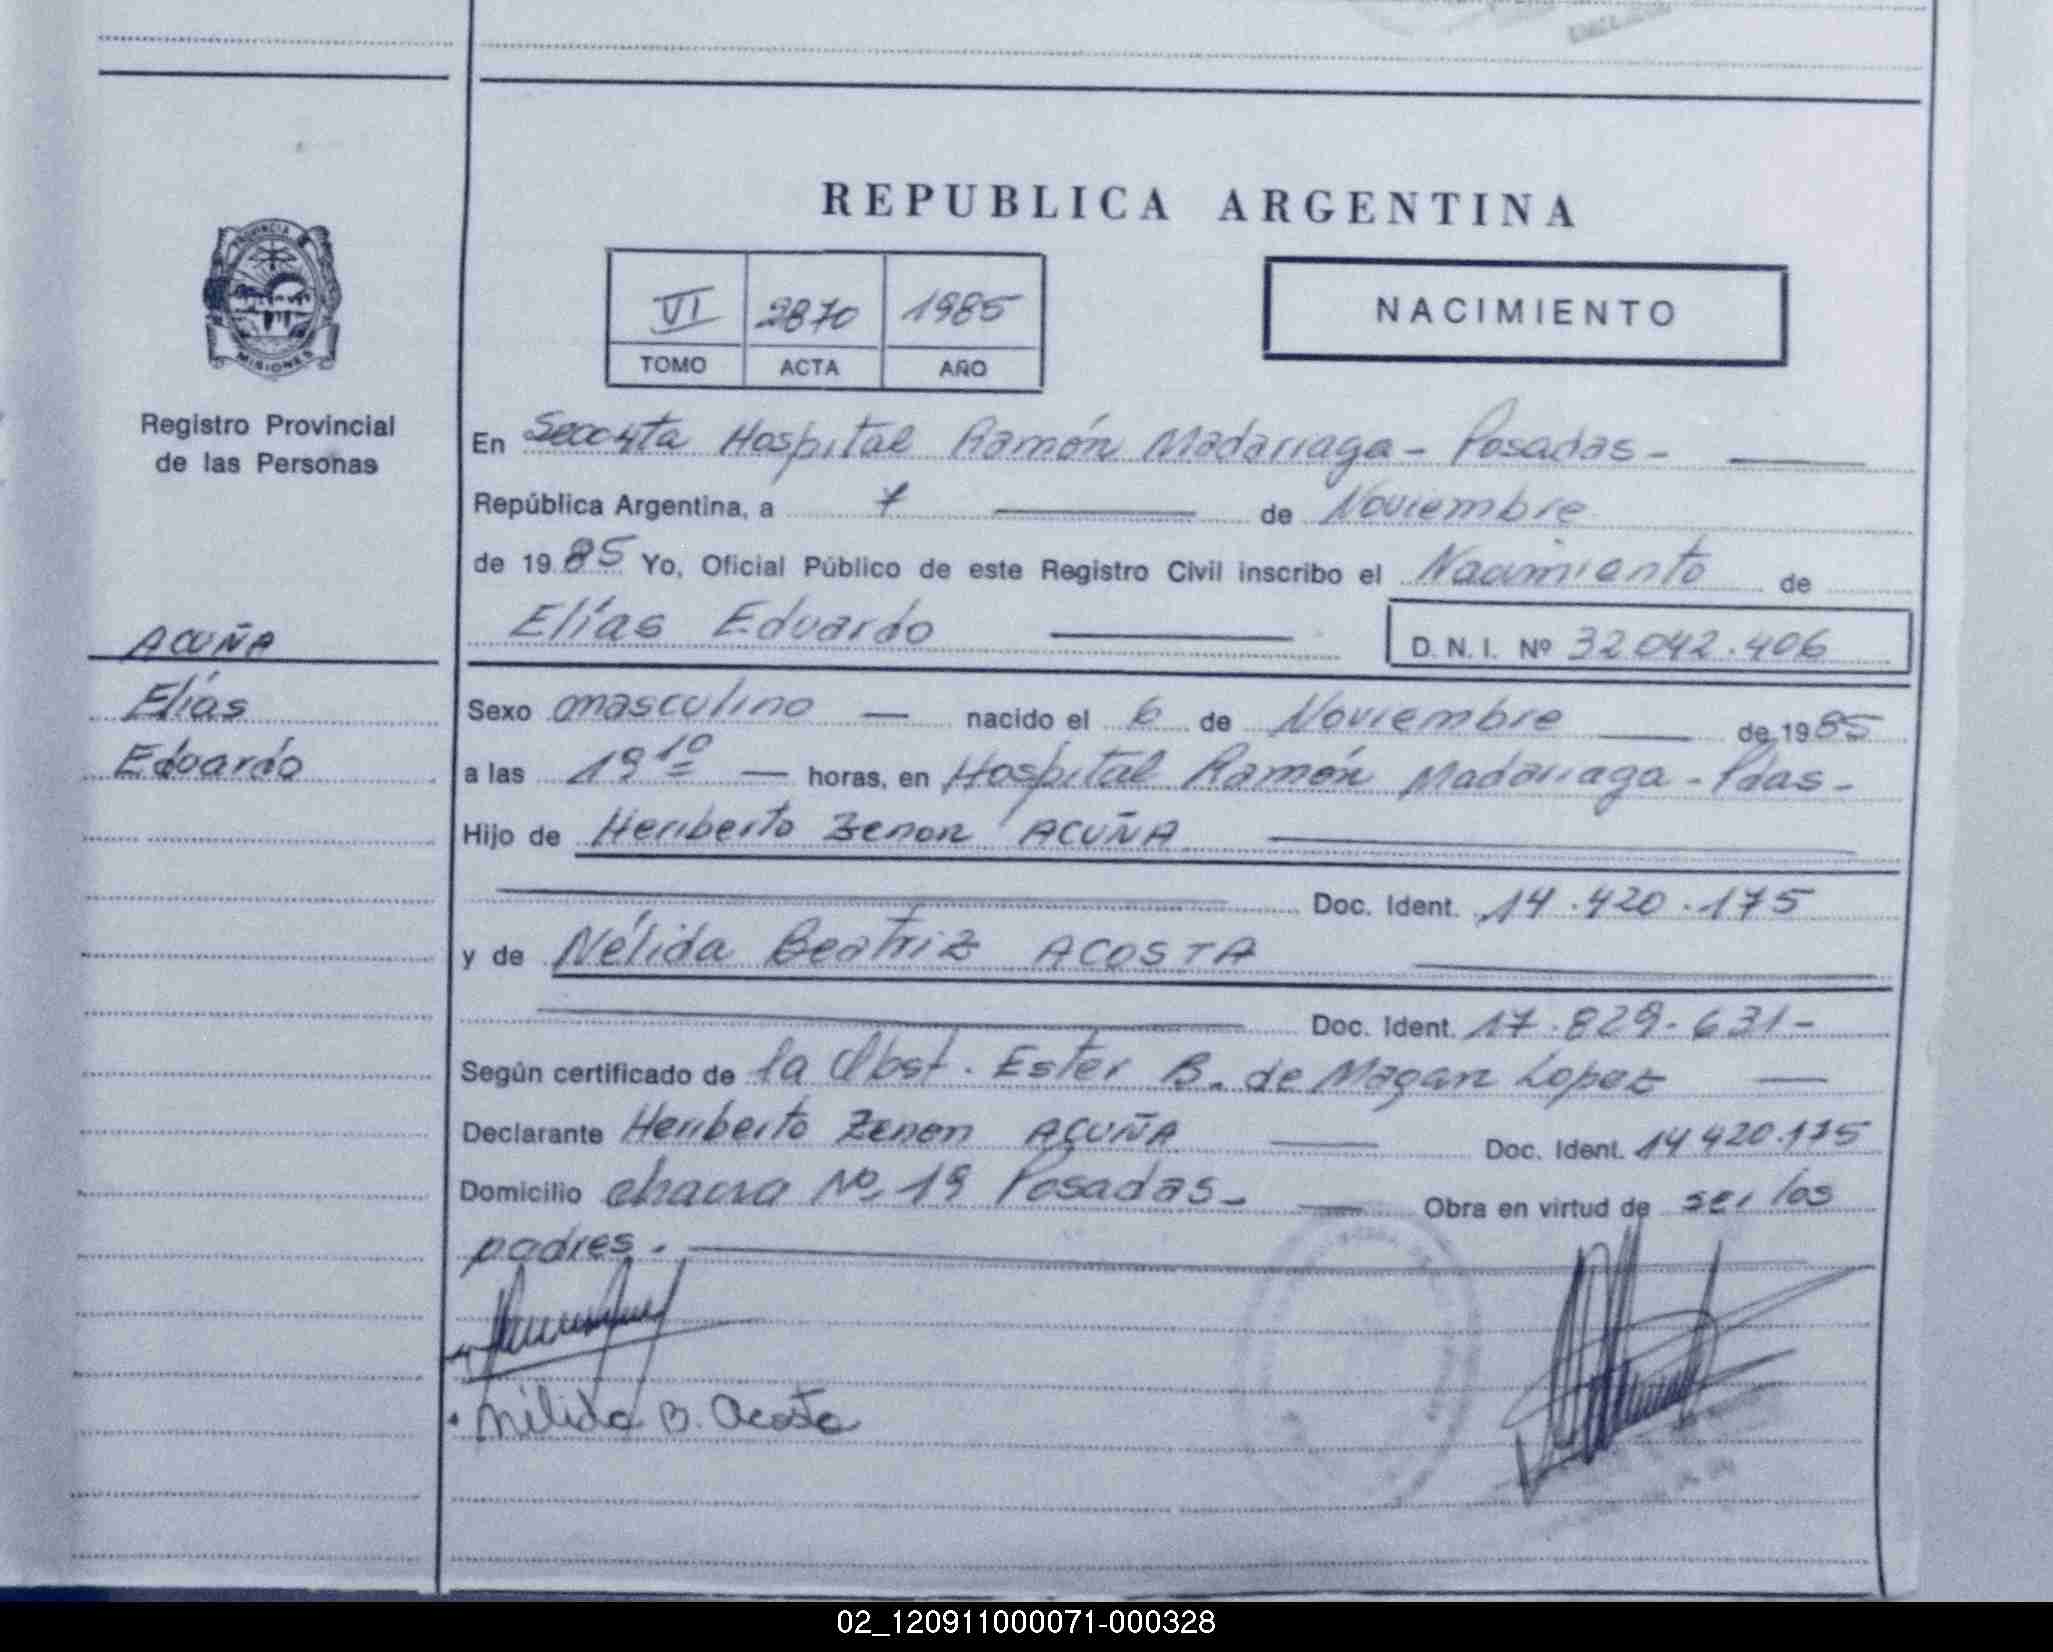 REPUBLICA ARGENTINA
PROVINCIA DE
MISIONES
Registro Provincial
de las Personas
VI 2870 1985
TOMO ACTA AÑO
NACIMIENTO
En Hospital Ramón Madariaga - Posadas -
República Argentina, a 7 de Noviembre
de 1985 Yo, Oficial Público de este Registro Civil inscribo el Nacimiento de
Elías Eduardo D. N. I. Nº 32042.406
ACUÑA
Elías
Eduardo
Sexo masculino — nacido el 6 de Noviembre de 1985
a las 19 10 — horas, en Hospital Ramón Madariaga - Pdas -
Hijo de Heriberto Zenon ACUÑA
Doc. Ident. 14.420.175
y de Nélida Beatriz ACOSTA
Doc. Ident. 17.829.631-
Según certificado de la Obst. Ester B. de Magan Lopez —
Declarante Heriberto Zenon ACUÑA — Doc. Ident. 14420.175
Domicilio chacra Nº 19 Posadas - Obra en virtud de ser los
padres.
Nélida B. Acosta
02_120911000071-000328